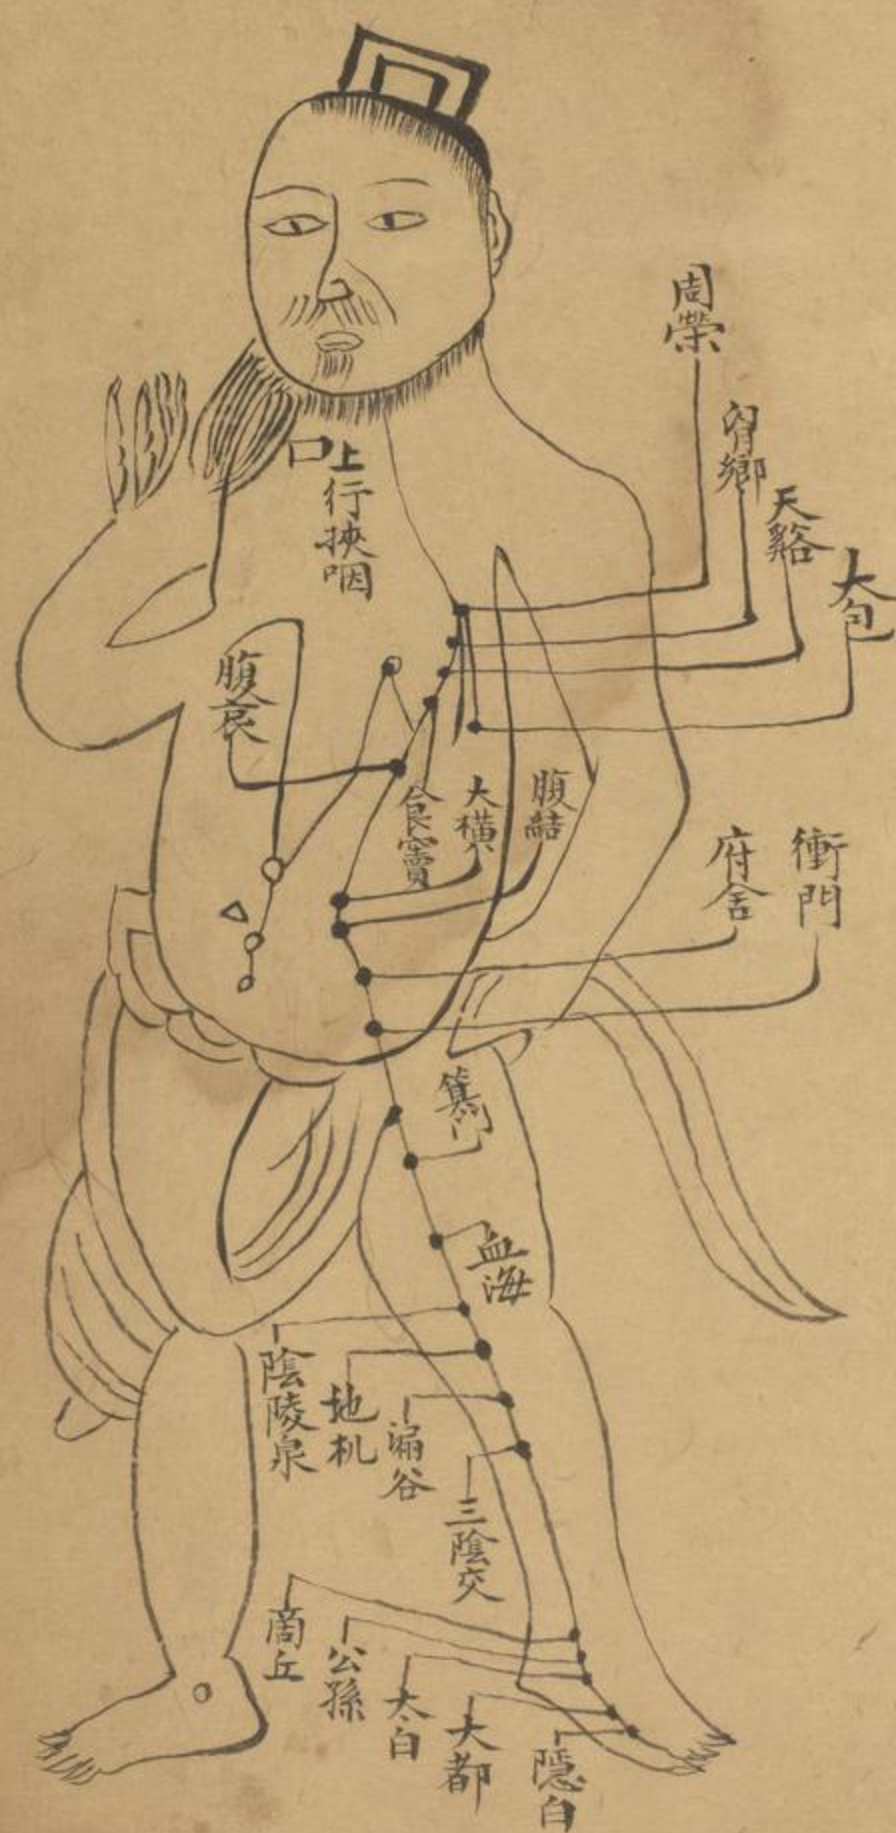 周榮
胷鄉
天谿
大包
口上行挾咽
腹哀
食竇
大橫
腹結
府舍
衝門
箕門
血海
陰陵泉
地机
漏谷
三陰交
商丘
公孫
太白
大都
隱白